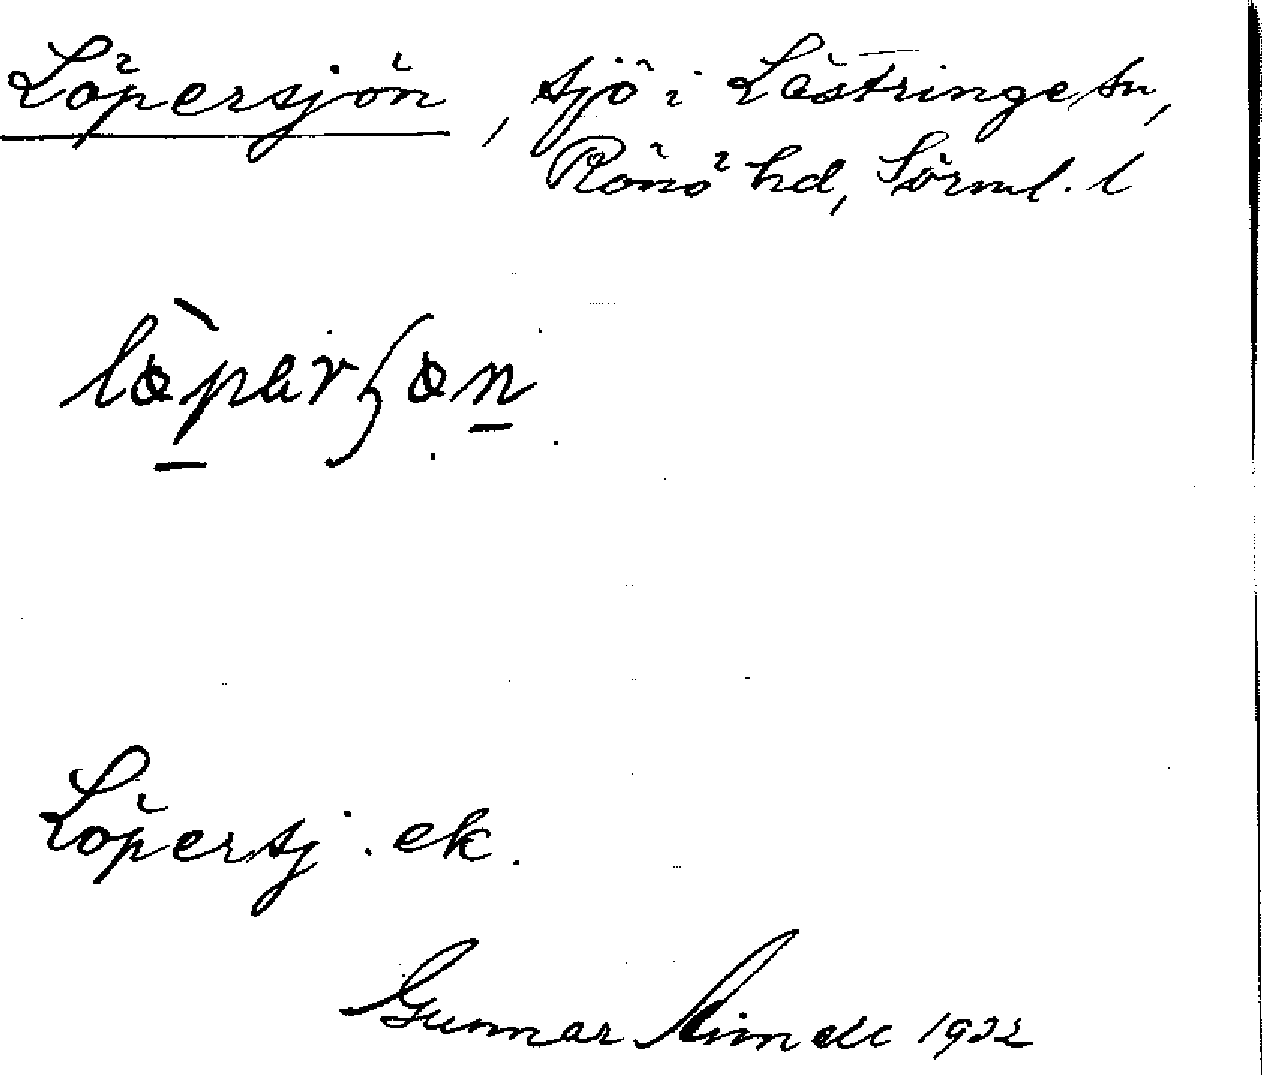 Löpersjön, sjö i Lästringe sn,
Rönö hd, Sörml. l
lö̀pərʃön
Löpersj. ek.
Gunnar Lindell 1922